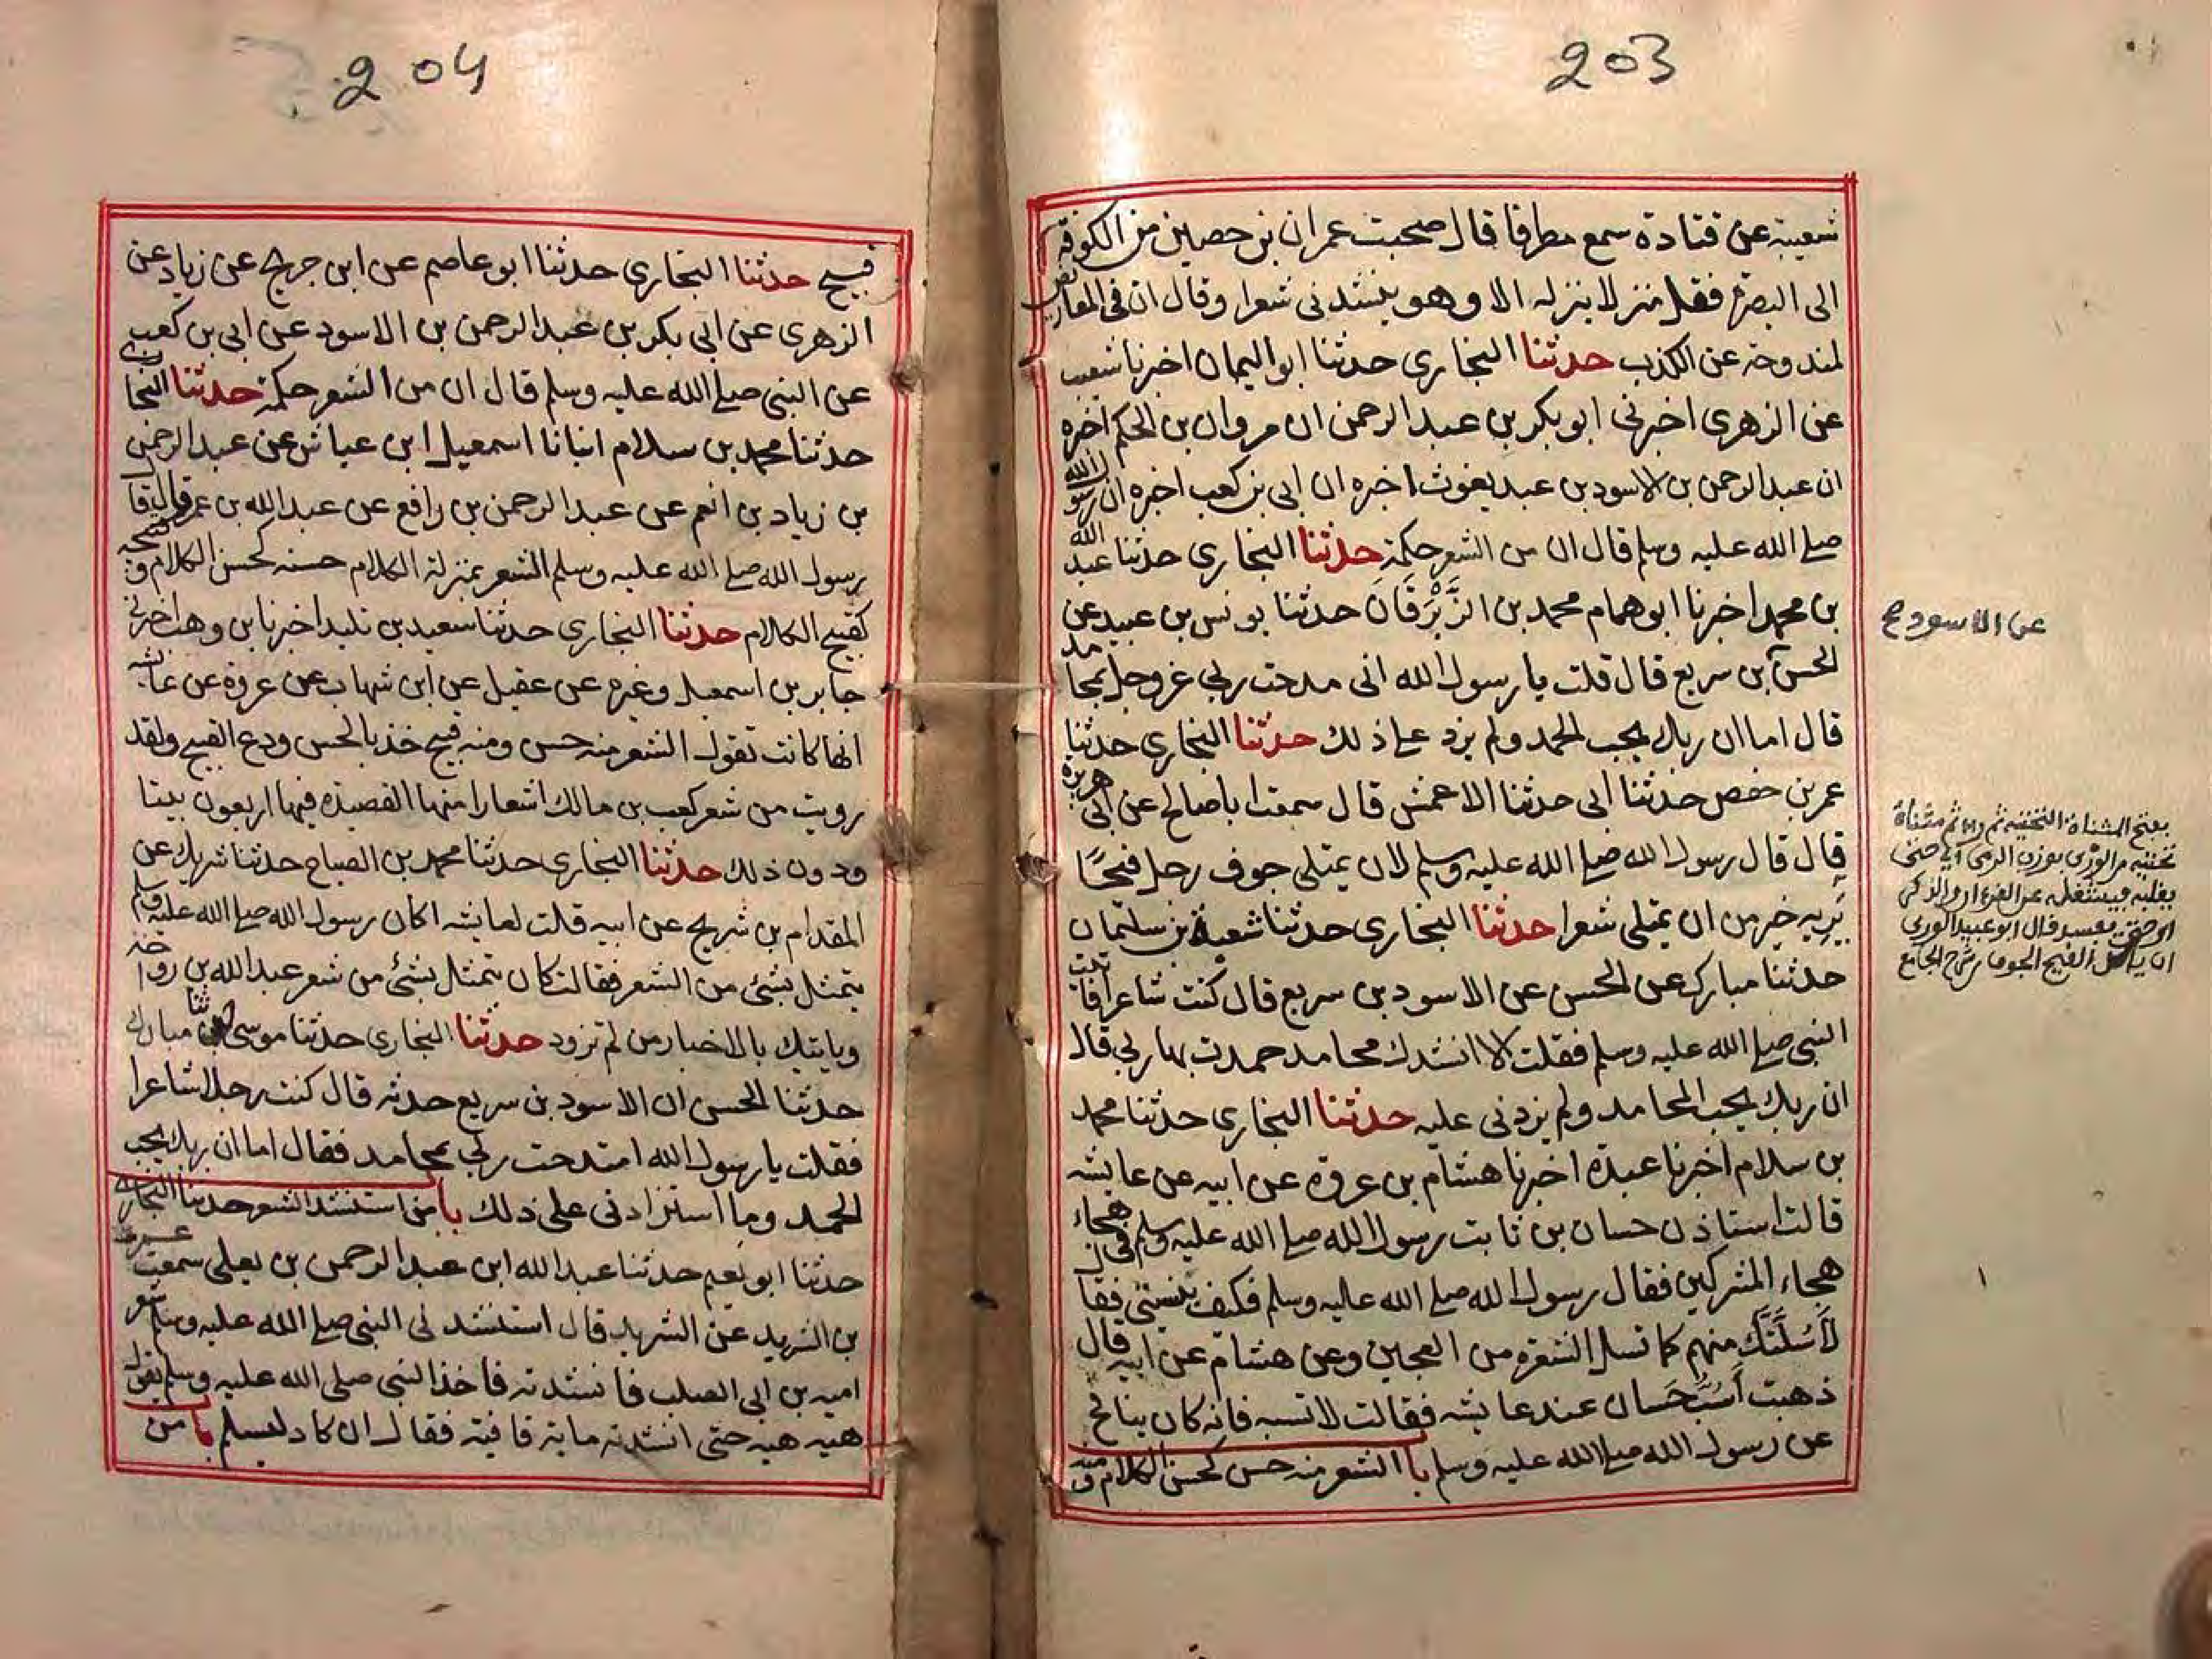 203
شعبة عن قتادة سمع مطرفا قال صحبت عمران بن حصين من الكوفة
الى البصرة فقل منزلا ينزله الا وهو ينشدنى شعرا وقال ان فى المعاريض
لمندوحة عن الكذب حدثنا البخارى حدثنا ابو اليمان اخبرنا شعيب
عن الزهرى اخبرنى ابو بكر بن عبد الرحمن ان مروان بن الحكم اخبره
ان عبد الرحمن بن الاسود بن عبد يغوث اخبره ان ابى بن كعب اخبره ان رسول الله
صلى الله عليه وسلم قال ان من الشعر حكمة حدثنا البخارى حدثنا عبد الله
بن محمد اخبرنا ابو همام محمد بن الزَّبْرَقَانَ حدثنا يونس بن عبيد عن
الحسن بن سريع قال قلت يا رسول الله انى مدحت ربى عز وجل بمحامد
قال اما ان ربك يحب الحمد ولم يزد على ذلك حدثنا البخارى حدثنا
عمر بن حفص حدثنا ابى حدثنا الاعمش قال سمعت ابا صالح عن ابى هريرة
قال قال رسول الله صلى الله عليه وسلم لان يمتلى جوف رجل قيحًا
يَرِيه خير من ان يمتلى شعرا حدثنا البخارى حدثنا شعبة بن سليمان
حدثنا مبارك عن الحسن عن الاسود بن سريع قال كنت شاعرا فاتيت
النبى صلى الله عليه وسلم فقلت الا انشدك محامد حمدت بها ربى قال
ان ربك يحب المحامد ولم يزدنى عليه حدثنا البخارى حدثنا محمد
بن سلام اخبرنا عبدة اخبرنا هشام بن عروة عن ابيه عن عايشه
قالت استاذن حسان بن ثابت رسول الله صلى الله عليه وسلم فى هجاء
هجاء المشركين فقال رسول الله صلى الله عليه وسلم فكيف بنسبتى فقال
لَأَسُلَّنَّكَ منهم كما تسل الشعره من العجين وعن هشام عن ابيه قال
ذهبت أَسُبُّ حَسان عند عايشه فقالت لا تسبه فانه كان ينافح
عن رسول الله صلى الله عليه وسلم با الشعر منه حسن كحسن الكلام ومنه
عن الاسود صح
بفتح المثناة التحتيه ثم راء ثم مثناة
تحتيه من الورى بوزن الرمى اى حتى
يغلبه فيشغله عن القرءان والذكر
او حتى يفسد قال ابو عبيد الورى
ان ياكل القيح الجوف شرح الجامع
204
قبيح حدثنا البخارى حدثنا ابو عاصم عن ابن جريج عن زياد عن
الزهرى عن ابى بكر بن عبد الرحمن بن الاسود عن ابى بن كعب
عن النبى صلى الله عليه وسلم قال ان من الشعر حكمة حدثنا البخارى
حدثنا محمد بن سلام انبانا اسمعيل ابن عياش عن عبد الرحمن
بن زياد بن انعم عن عبد الرحمن بن رافع عن عبد الله بن عمر قال قال
رسول الله صلى الله عليه وسلم الشعر بمنزلة الكلام حسنه كحسن الكلام وقبيحه
كقبيح الكلام حدثنا البخارى حدثنا سعيد بن تليد اخبرنا بن وهب اخبرنى
جابر بن اسمعيل وغيره عن عقيل عن ابن شهاب عن عروة عن عايشه
انها كانت تقول الشعر منه حسن ومنه قبيح خذ بالحسن ودع القبيح ولقد
رويت من شعر كعب بن مالك اشعارا منها القصيده فيها اربعون بيتا
ودون ذلك حدثنا البخارى حدثنا محمد بن الصباح حدثنا شريك عن
المقدام بن شريح عن ابيه قلت لعايشه اكان رسول الله صلى الله عليه وسلم
يتمثل بشئ من الشعر فقالت كان يتمثل بشئ من شعر عبد الله بن رواحة
وياتيك بالاخبار من لم تزود حدثنا البخارى حدثنا موسى ثنا مبارك
حدثنا الحسن ان الاسود بن سريع حدثه قال كنت رجلا شاعرا
فقلت يا رسول الله امتدحت ربى بمحامد فقال اما ان ربك يحب
الحمد وما استزادنى على ذلك با من استنشد الشعر حدثنا البخارى
حدثنا ابو نعيم حدثنا عبد الله ابن عبد الرحمن بن يعلى سمعت عمرو
بن الشريد عن الشريد قال استنشدنى النبى صلى الله عليه وسلم شعر
اميه بن ابى الصلت فانشدته فاخذ النبى صلى الله عليه وسلم يقول
هيه هيه حتى انشدته ماية قافية فقال ان كاد ليسلم با من